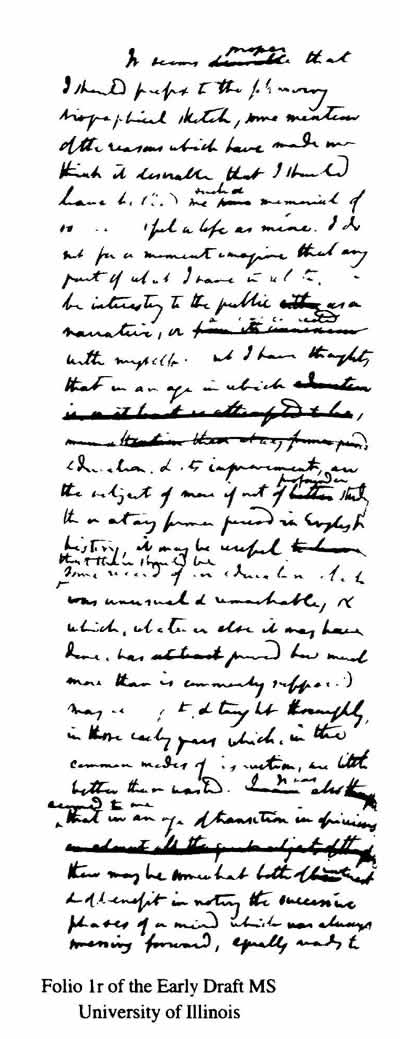 It seems proper desirable that
I should prefix to the following
biographical sketch, some mention
of the reasons which have made me
think it desirable that I should
leave me such a memorial of
a life as mine. I do
not for a moment imagine that any
part of what I have to
be interesting to the public as a
narrative, or connected
with myself. But I have thought,
that in an age in which education
is or at least is attempted to be,
more attention than at any former period
education, & its improvement, are
the subject of more if not of profounder better study
than at any former period in English
history, it may be useful to leave
that there should be
some record of an education which
was unusual & remarkable, &
which, whatever else it may have
done, has at least proved how much
more than is commonly supposed
may be taught, & taught thoroughly,
in those early years which, in the
common modes of instruction, are little
better than wasted. It has also
seemed to me
that in an age of transition in opinions
in almost all the great subjects of
there may be somewhat both of interest
& of benefit in noting the successive
phases of a mind which was always
pressing forward, equally ready to
Folio 1r of the Early Draft MS
University of Illinois